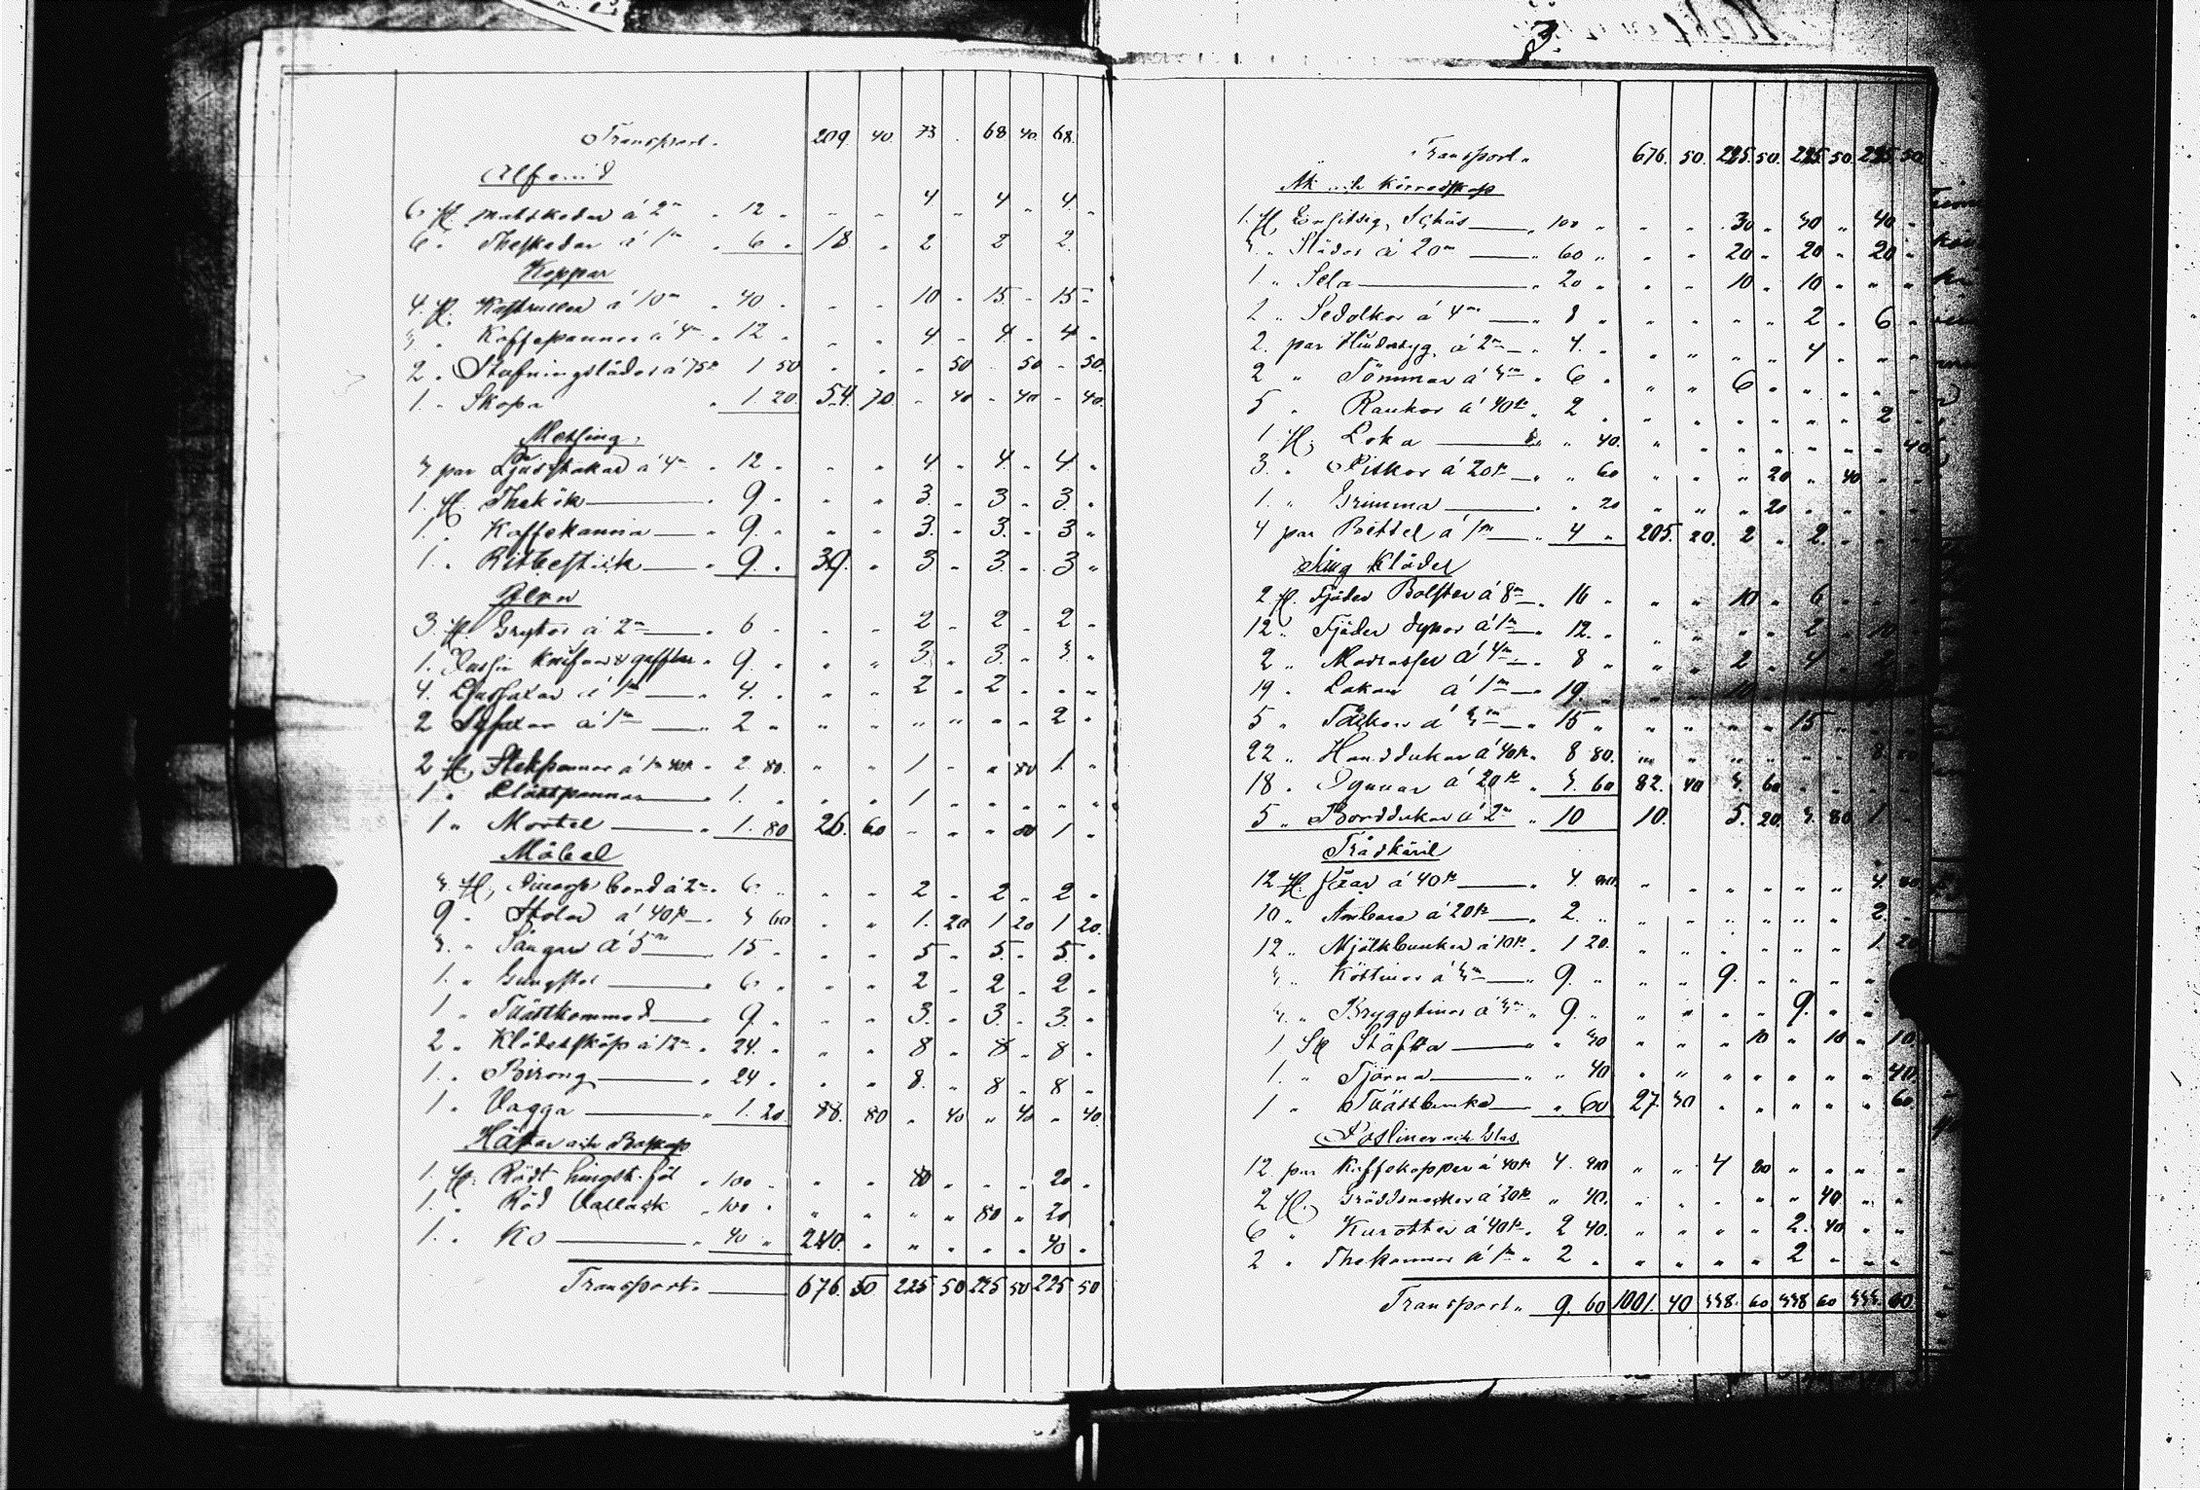 Transport. 209. 40. 73 . 68 40 68.
Alfenid
6 st. matskedar á 2 m „ 12 „ „ „ 4 „ 4 „ 4 „
6 „ Theskedar á 1 m „ 6 „ 18 „ 2 2 2.
Koppar
4. st. Kastruller á 10 m „ 40 „ „ „ 10 „ 15 „ 15 „
3 „ Kaffepannor á 4 m „ 12 „ „ „ 4 „ 4 „ 4 „
2 „ Stufningslådor á 75 p 1 50 „ „ „ 50 „ 50 „ 50.
1. „ Skopa „ 1. 20. 54. 70 „ 40 „ 40 „ 40.
Messing.
3 par Ljusstakar á 4 m „ 12 „ „ „ 4 „ 4 „ 4 „
1. st. Thekök „ 9 „ „ „ 3 „ 3 „ 3 „
1. „ Kaffekanna „ 9. „ „ „ 3. „ 3. „ 3 „
1. „ Ritbestick „ 9. „ 39. „ 3 „ 3 „ 3 „
3. st. Grytor á 2 m „ 6 „ „ „ 2 „ 2 „ 2 „
1. Dussin knifvar & gafflar „ 9. „ „ „ 3. „ 3. „ 3. „
4. Ljussaxar á 1 m „ 4. „ „ „ 2 „ 2 „ „ „
2 „ á 1 m „ 2 „ „ „ „ „ „ „ 2 „
2 st. Stekpannor á 1 m 40 p „ 2. 80. „ „ 1 „ „ 80 1 „
1 „ Plättpanna „ 1. „ „ „ 1 „ „ „ „ „
1 „ Mortel „ 1. 80 26. 60 „ „ „ 80 1 „
Möbel
3. st. bord á 2 m „ 6 „ „ „ 2 „ 2 „ 2 „
9 „ Stolar á 40 p „ 3 60 „ „ 1. 20 1 20 1 20.
3. „ Sängar á 5 m 15 „ „ „ 5 „ 5. „ 5. „
1. „ Gungstol „ 6 „ „ „ 2 „ 2 „ 2 „
1 „ Tvättkommod „ 9. „ „ „ 3. „ 3. „ 3. „
2 „ Klädesskåp á 12 m „ 24. „ „ „ 8 „ 8 „ 8 „
1. „ Birong „ 24 „ „ „ 8. „ 8 „ 8 „
1 „ Vagga „ 1. 20 88. 80 „ 40 „ 40 „ 40.
Hästar och Boskap
1. st. Rödt hingst föl „ 100 „ „ „ 80 „ „ „ 20 „
1. „ Röd Vallack „ 100 „ „ „ „ „ 80 „ 20
1. „ Ko „ 40 „ 240. „ „ „ „ „ 40 „
Transport. 676. 50 225 50 225 50 225 50
Transport „ 676. 50. 225. 50. 225 50. 225 50
Åk och körredskap
1. st. Enfitsig Schäs „ 100 „ „ „ 30 „ 30 „ 40 „
3. „ Slädor á 20 m „ 60 „ „ „ 20 „ 20 „ 20 „
1 „ Sela „ 20 „ „ „ 10 „ 10 „ „ „
2 „ Sedolkor á 4 m „ 8 „ „ „ „ „ 2 „ 6 „
2. par á 2 m „ 4. „ „ „ „ „ 4 „ „ „
2 „ Tömmar á 3 m „ 6 „ „ „ 6 „ „ „ „ „
5 „ Rankor á 40 p „ 2 „ „ „ „ „ „ „ 2 „
1 st. Loka „ „ 40. „ „ „ „ „ „ „ 40
3. „ á 20 p „ „ 60 „ „ „ 20 „ 40 „ „
1. „ Grimma „ „ 20 „ „ „ 20 „ „ „ „
4 par Bettel á 1 m „ 4 „ 205. 20. 2 „ 2. „ „ „
Säng kläder
2 st. Fjäder Bolster á 8 m „ 16 „ „ „ 10 „ 6 „ „ „
12 „ Fjäder dynor á 1 m „ 12. „ „ „ „ „ 2 „ 10 „
2 „ Madrasser á 4 m „ 8 „ „ „ 2 „ 4 „ 2 „
19 „ Lakan á 1 m „ 19. „ „ „ 10
5 „ Täcken á 3 m „ 15 „ „ „ „ „ 15 „ „ „
22 „ Handdukar á 40 p „ 8 80. „ „ „ „ „ „ 8 80
18. „ á 20 p „ 3. 60 82. 40 3. 60 „ „ „ „
5 „ Borddukar á 2 m „ 10 10. 5. 20. 3. 80 1 „
Trädkäril
12 st. á 40 p „ 4. 80. „ „ „ „ „ „ 4. 80
10 „ Ämbare á 20 p „ 2. „ „ „ „ „ „ „ 2. „
12 „ Mjölkbunkar á 10 p „ 1 20. „ „ „ „ „ „ 1 20
3. „ Köttinor á 3 m „ 9. „ „ „ 9. „ „ „ „ „
3. „ Bryggtinor á 3 m „ 9. „ „ „ „ „ 9. „ „ „
1 St Stäfva „ „ 30 „ „ „ 10 „ 10 „ 10.
1. „ Tjärna „ „ 40 „ „ „ „ „ „ „ 40.
1 „ Tvättbunke „ 60 27. 30 „ „ „ „ „ 60.
Posliner och Glas
12 par Kaffekoppar á 40 p 4. 80 „ „ 4 80 „ „ „ „
2 st. Gräddsnäckor á 20 p „ 40. „ „ „ „ „ 40 „ „
6 „ Karotter á 40 p „ 2 40. „ „ „ „ 2. 40 „ „
2 „ Thekannor á 1 m „ 2 „ „ „ „ „ 2 „ „ „
Transport „ 9. 60 1001. 40 338. 60 338 60 333. 60.